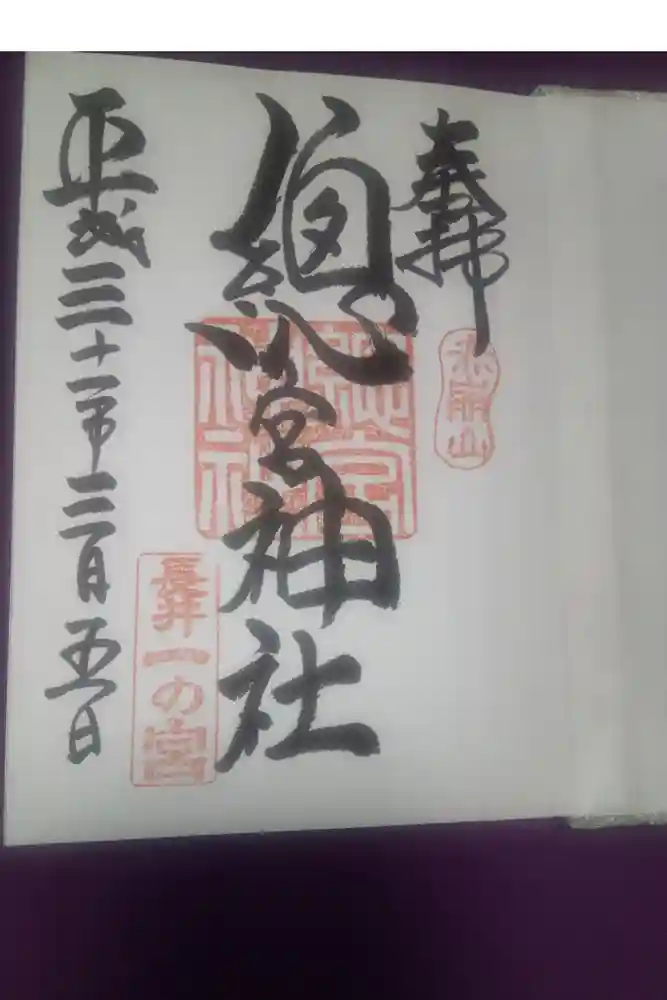 奉拝
總宮神社
總宮
神社
長井一の宮
平成三十一年三月五日